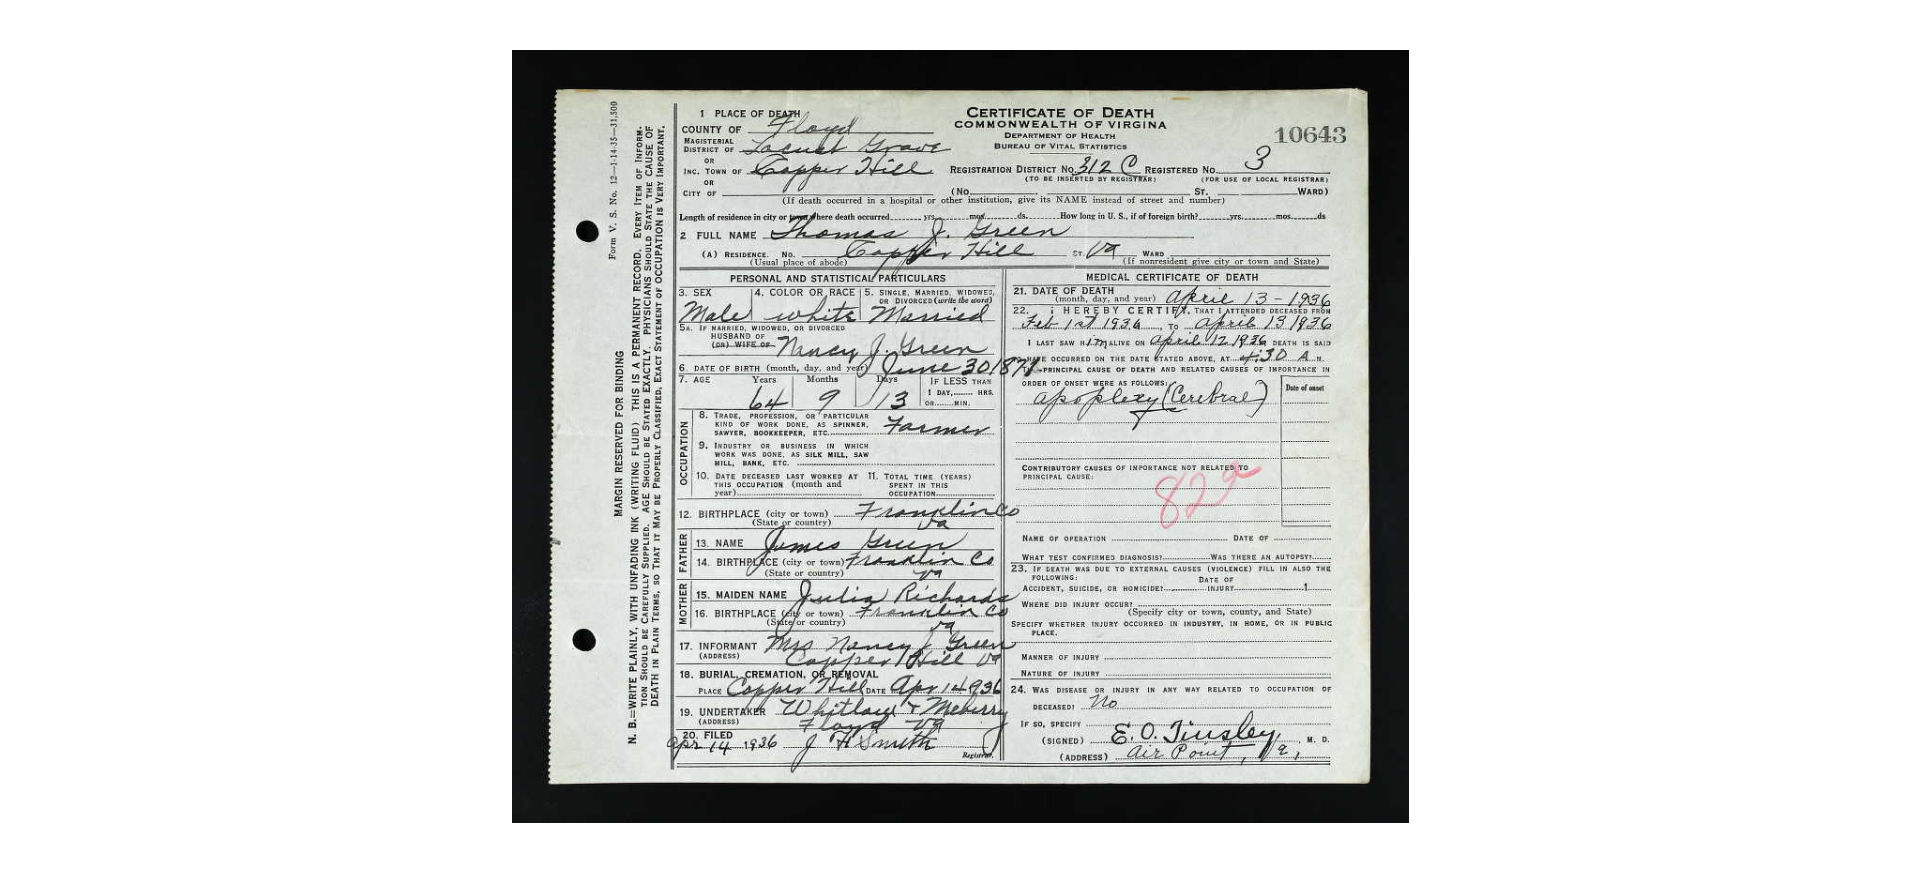 1 PLACE OF DEATH
CERTIFICATE OF DEATH
COMMONWEALTH OF VIRGINIA
DEPARTMENT OF HEALTH
BUREAU OF VITAL STATISTICS
10643
COUNTY OF Floyd
MAGISTERIAL DISTRICT OF Locust Grove
OR
INC. TOWN OF Copper Hill
REGISTRATION DISTRICT NO. 312 C REGISTERED NO. 3
(TO BE INSERTED BY REGISTRAR) (FOR USE OF LOCAL REGISTRAR)
OR
CITY OF (No. ST. WARD)
(If death occurred in a hospital or other institution, give its NAME instead of street and number)
Length of residence in city or town where death occurred yrs. mos. ds. How long in U. S., if of foreign birth? yrs. mos. ds
2 FULL NAME Thomas J. Green
(A) RESIDENCE. NO. Copper Hill ST. Va WARD
(Usual place of abode) (If nonresident give city or town and State)
PERSONAL AND STATISTICAL PARTICULARS
3. SEX Male
4. COLOR OR RACE white
5. SINGLE, MARRIED, WIDOWED, OR DIVORCED (write the word) Married
5A. IF MARRIED, WIDOWED, OR DIVORCED
HUSBAND OF
(OR) WIFE OF Nancy J. Green
6. DATE OF BIRTH (month, day, and year) June 30 1871
7. AGE Years 64 Months 9 Days 13 IF LESS THAN
1 DAY, HRS.
OR MIN.
OCCUPATION
8. TRADE, PROFESSION, OR PARTICULAR
KIND OF WORK DONE, AS SPINNER,
SAWYER, BOOKKEEPER, ETC. Farmer
9. INDUSTRY OR BUSINESS IN WHICH
WORK WAS DONE, AS SILK MILL, SAW
MILL, BANK, ETC.
10. DATE DECEASED LAST WORKED AT THIS OCCUPATION (month and year)
11. TOTAL TIME (YEARS) SPENT IN THIS OCCUPATION
12. BIRTHPLACE (city or town) Franklin Co
(State or country) Va
FATHER
13. NAME James Green
14. BIRTHPLACE (city or town) Franklin Co
(State or country) Va
MOTHER
15. MAIDEN NAME Julia Richards
16. BIRTHPLACE (city or town) Franklin Co
(State or country) Va
17. INFORMANT Mrs Nancy J Green
(ADDRESS) Copper Hill Va
18. BURIAL, CREMATION, OR REMOVAL
PLACE Copper Hill DATE Apr 14 1936
19. UNDERTAKER Whitlow &
(ADDRESS) Floyd Va
20. FILED
Apr 14 1936 J H Smith
Registrar.
MEDICAL CERTIFICATE OF DEATH
21. DATE OF DEATH
(month, day, and year) April 13 - 1936
22. I HEREBY CERTIFY, THAT I ATTENDED DECEASED FROM
Feb 1st 1936, TO April 13 1936
I LAST SAW HIM ALIVE ON April 12 1936 DEATH IS SAID
TO HAVE OCCURRED ON THE DATE STATED ABOVE, AT 4:30 A M.
THE PRINCIPAL CAUSE OF DEATH AND RELATED CAUSES OF IMPORTANCE IN
ORDER OF ONSET WERE AS FOLLOWS:
Date of onset
apoplexy (Cerebral)
CONTRIBUTORY CAUSES OF IMPORTANCE NOT RELATED TO
PRINCIPAL CAUSE:
82a
NAME OF OPERATION DATE OF
WHAT TEST CONFIRMED DIAGNOSIS? WAS THERE AN AUTOPSY?
23. IF DEATH WAS DUE TO EXTERNAL CAUSES (VIOLENCE) FILL IN ALSO THE
FOLLOWING:
ACCIDENT, SUICIDE, OR HOMICIDE? DATE OF INJURY 1
WHERE DID INJURY OCCUR?
(Specify city or town, county, and State)
SPECIFY WHETHER INJURY OCCURRED IN INDUSTRY, IN HOME, OR IN PUBLIC
PLACE.
MANNER OF INJURY
NATURE OF INJURY
24. WAS DISEASE OR INJURY IN ANY WAY RELATED TO OCCUPATION OF
DECEASED? No
IF SO, SPECIFY
(SIGNED) E. O. Tinsley, M. D.
(ADDRESS) Air Point, Va,
Form V. S. No. 12—1-14-35—31,500
MARGIN RESERVED FOR BINDING
N. B.—WRITE PLAINLY, WITH UNFADING INK (WRITING FLUID) THIS IS A PERMANENT RECORD. EVERY ITEM OF INFORM-
TION SHOULD BE CAREFULLY SUPPLIED. AGE SHOULD BE STATED EXACTLY. PHYSICIANS SHOULD STATE THE CAUSE OF
DEATH IN PLAIN TERMS, SO THAT IT MAY BE PROPERLY CLASSIFIED. EXACT STATEMENT OF OCCUPATION IS VERY IMPORTANT.